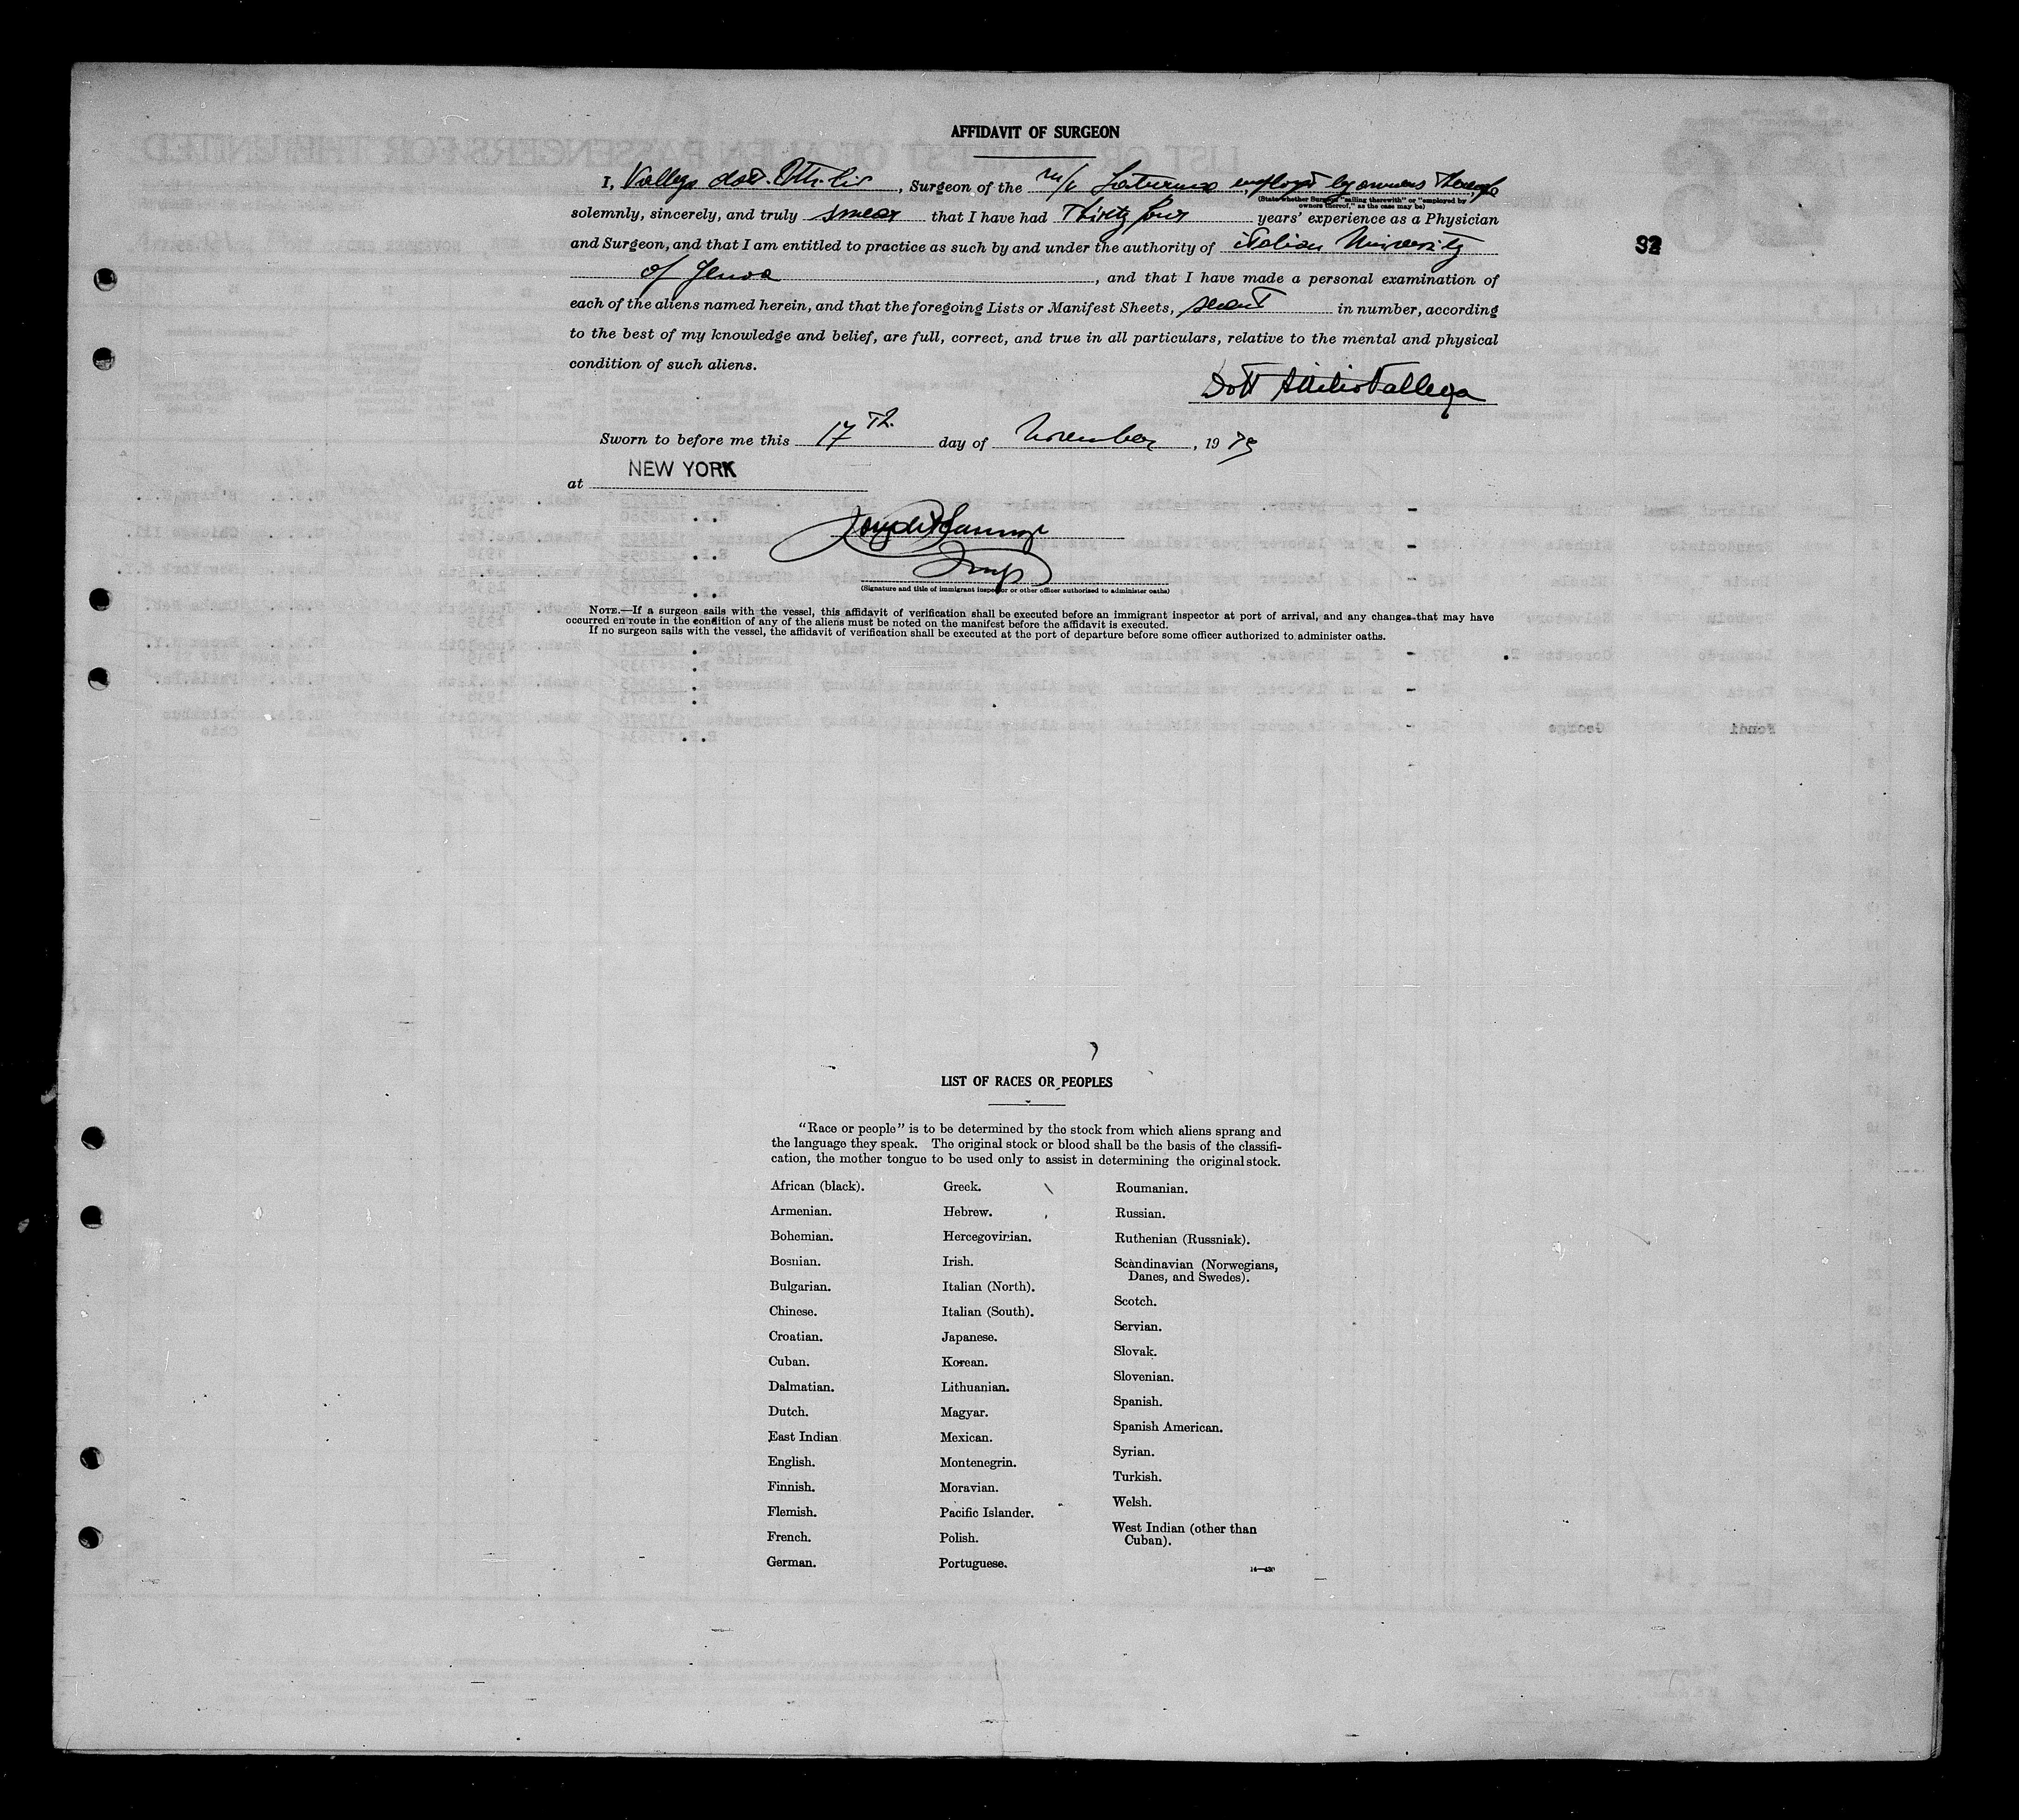 AFFIDAVIT OF SURGEON
I, Vallega dott. Attilio, Surgeon of the m/v Saturnia employed by owners thereof
(State whether Surgeon "sailing therewith" or "employed by
owners thereof," as the case may be)
solemnly, sincerely, and truly swear that I have had Thirty four years' experience as a Physician
and Surgeon, and that I am entitled to practice as such by and under the authority of italian University
of Genoa, and that I have made a personal examination of
32
each of the aliens named herein, and that the foregoing Lists or Manifest Sheets, in number, according
to the best of my knowledge and belief, are full, correct, and true in all particulars, relative to the mental and physical
condition of such aliens.
Dott Attilio Vallega
Sworn to before me this 17th day of November, 19
at NEW YORK
Insp
(Signature and title of immigrant inspector or other officer authorized to administer oaths)
NOTE.—If a surgeon sails with the vessel, this affidavit of verification shall be executed before an immigrant inspector at port of arrival, and any changes that may have
occurred en route in the condition of any of the aliens must be noted on the manifest before the affidavit is executed.
If no surgeon sails with the vessel, the affidavit of verification shall be executed at the port of departure before some officer authorized to administer oaths.
LIST OF RACES OR PEOPLES
"Race or people" is to be determined by the stock from which aliens sprang and
the language they speak. The original stock or blood shall be the basis of the classifi-
cation, the mother tongue to be used only to assist in determining the original stock.
African (black).
Armenian.
Bohemian.
Bosnian.
Bulgarian.
Chinese.
Croatian.
Cuban.
Dalmatian.
Dutch.
East Indian
English.
Finnish.
Flemish.
French.
German.
Greek.
Hebrew.
Hercegovinian.
Irish.
Italian (North).
Italian (South).
Japanese.
Korean.
Lithuanian.
Magyar.
Mexican.
Montenegrin.
Moravian.
Pacific Islander.
Polish.
Portuguese.
Roumanian.
Russian.
Ruthenian (Russniak).
Scandinavian (Norwegians,
Danes, and Swedes).
Scotch.
Servian.
Slovak.
Slovenian.
Spanish.
Spanish American.
Syrian.
Turkish.
Welsh.
West Indian (other than
Cuban).
14—430